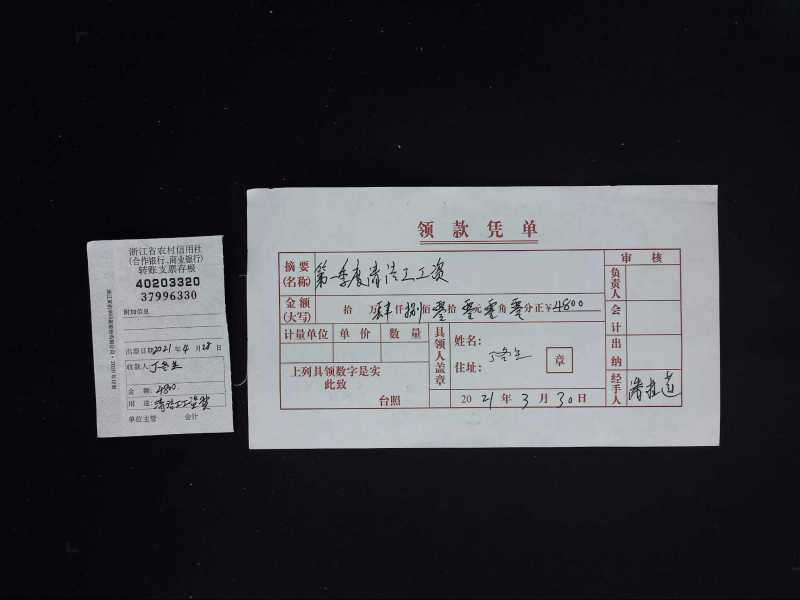 浙江省农村信用社
(合作银行、商业银行)
转账支票存根
40203320
37996330
附加信息
出票日期2021年4月28日
收款人:丁冬生
金 额:4800
用 途:清洁工工资
单位主管 会计
领款凭单
摘要(名称) 第一季度清洁工工资
金额(大写) 拾 万肆仟捌佰零拾零元零角零分正¥4800
计量单位 单价 数量
上列具领数字是实
此致
台照
具领人盖章
姓名:
丁冬生
住址:
章
2021年3月30日
审 核
负责人
会计
出纳
经手人